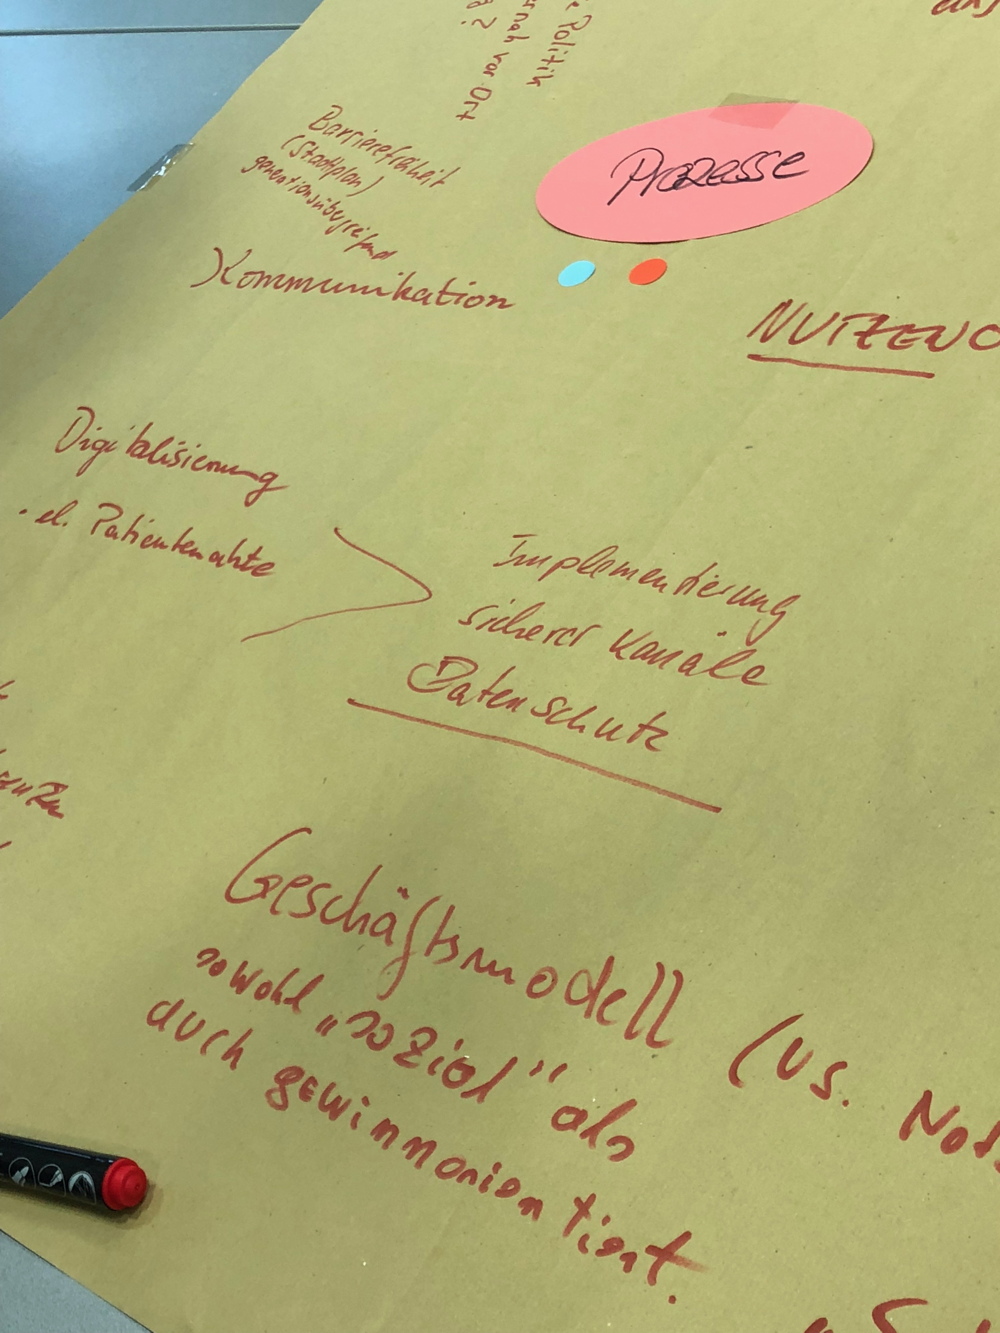 Politik
vor Ort
?
Prozesse
Barrierefreiheit
(Stadtplan)
generationsübergreifend
Kommunikation
NUTZEN
Digitalisierung
· el. Patientenakte
Implementierung
sicherer Kanäle
Datenschutz
Geschäftsmodell (vs. Not
sowohl „sozial" als
auch gewinnorientiert.